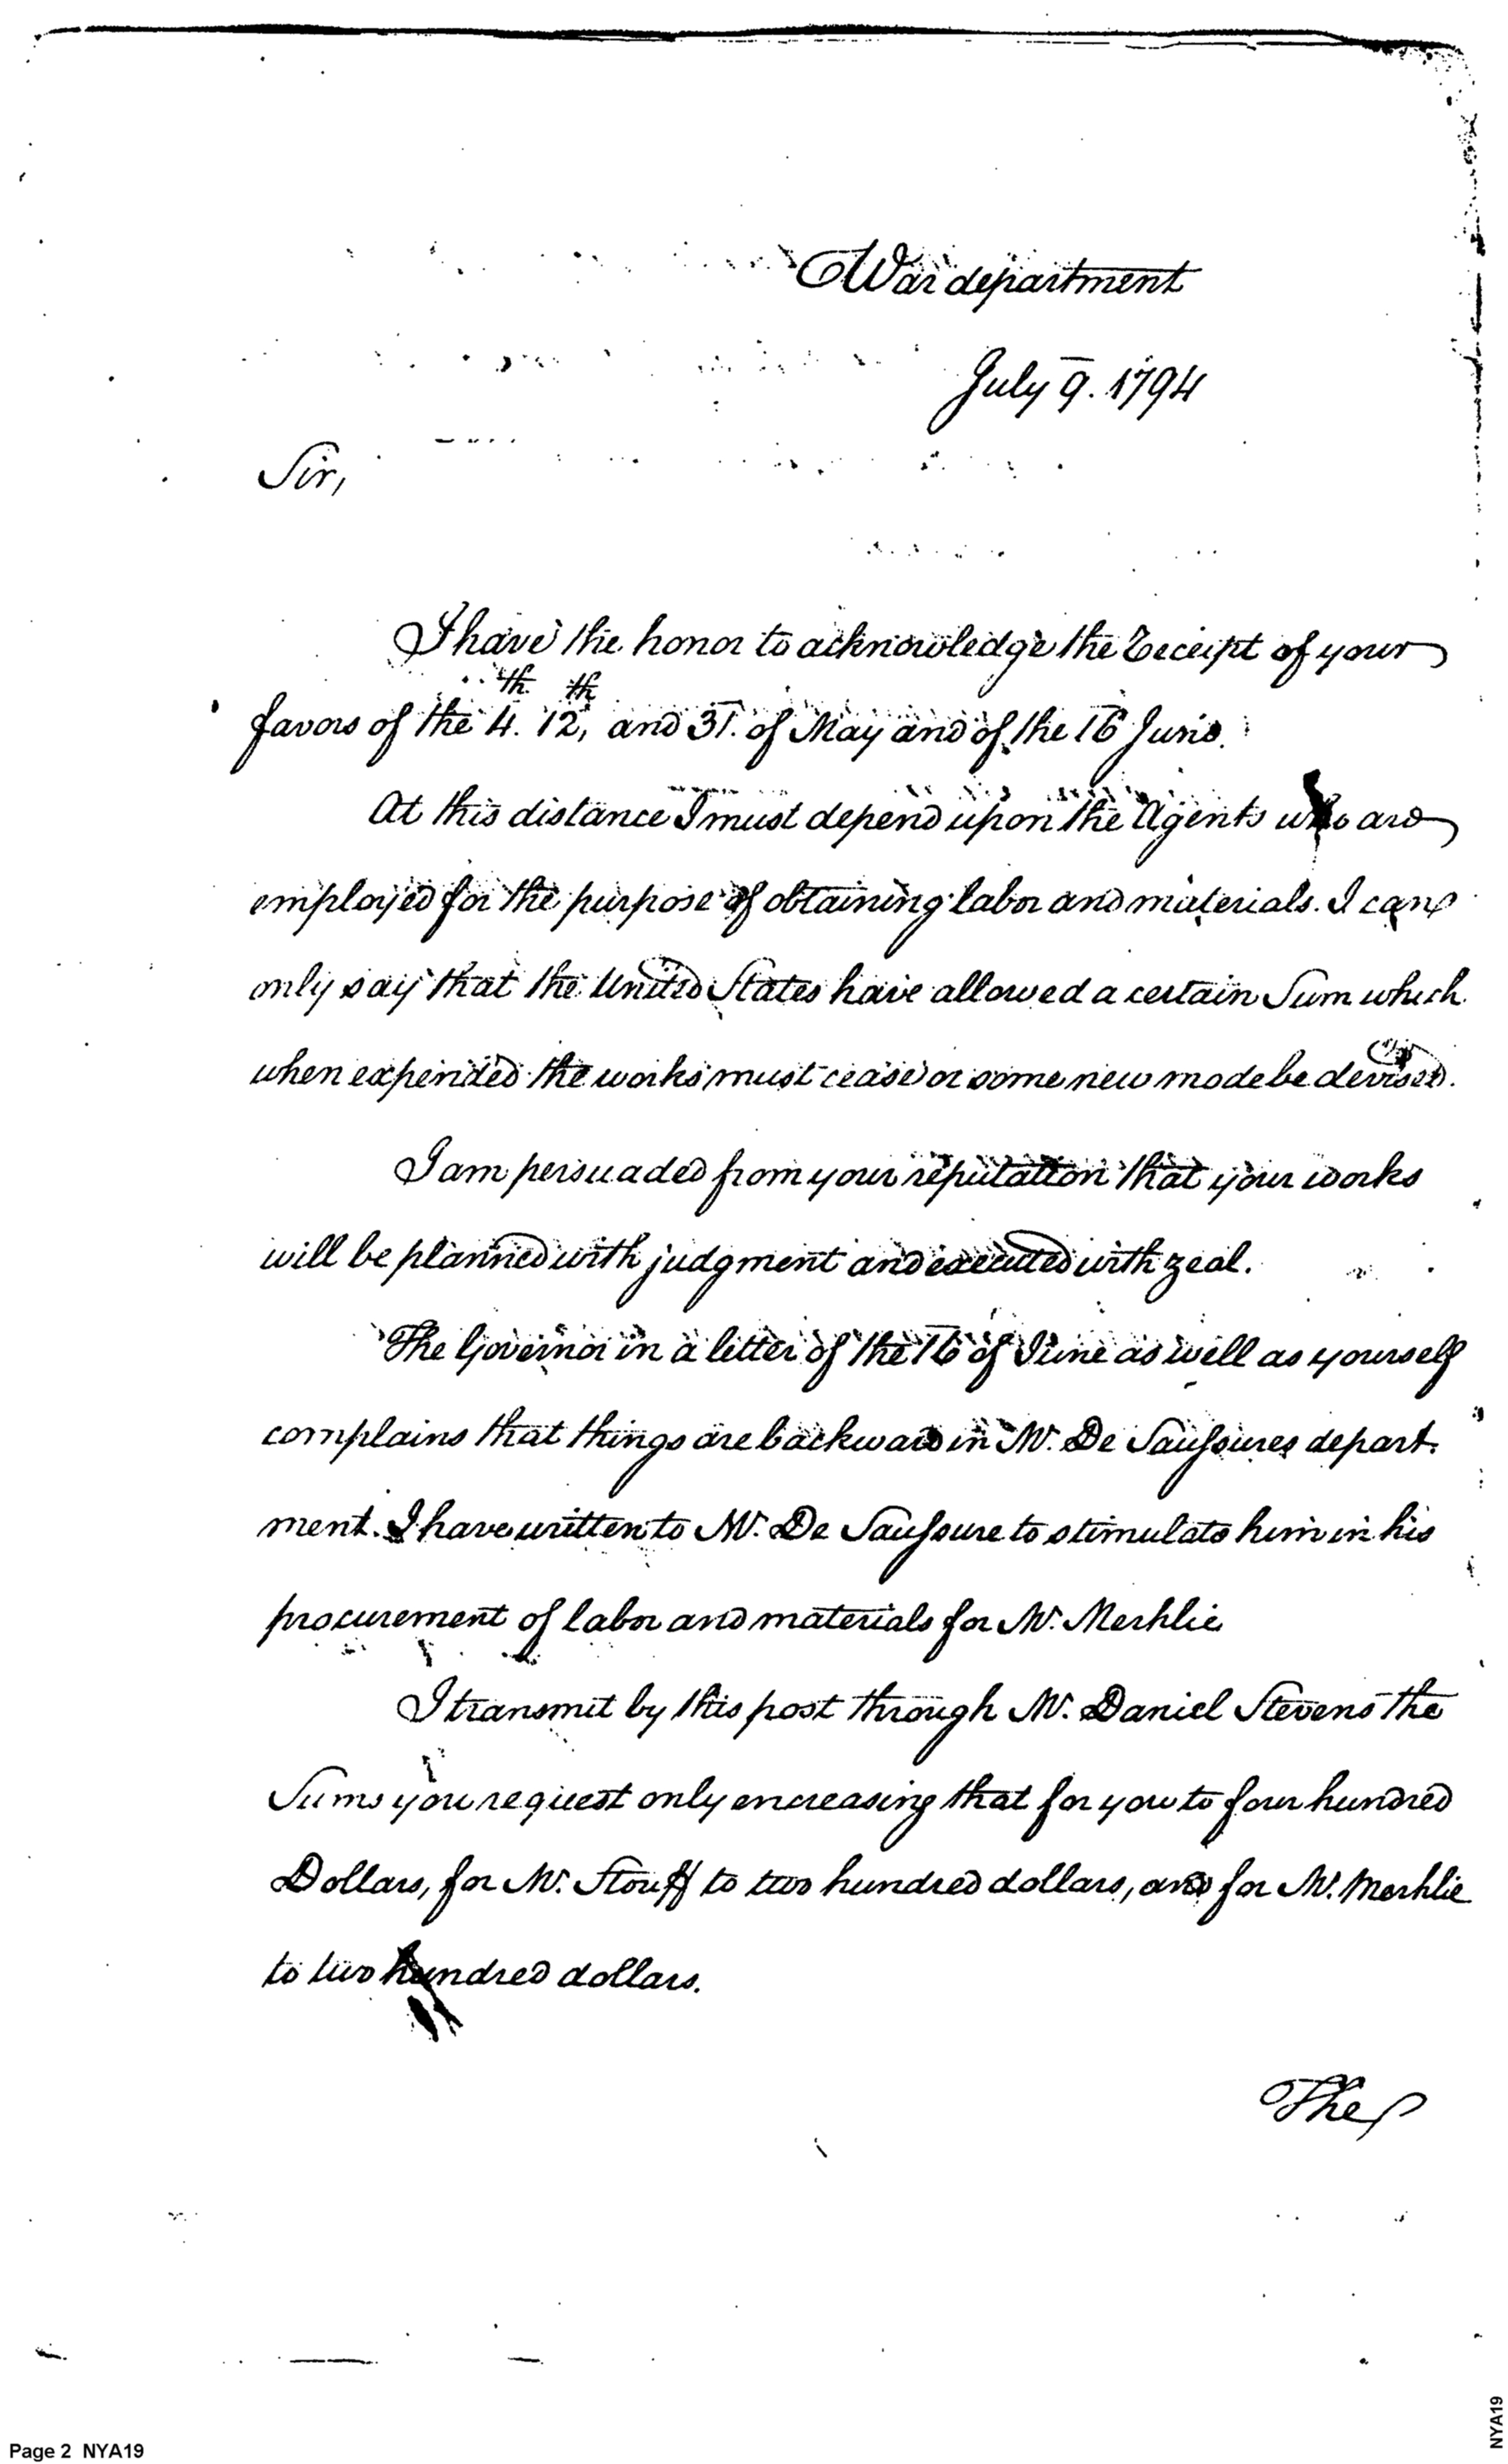 War department
July 9. 1794
Sir,
I have the honor to acknowledge the Receipt of your
favors of the 4.th 12th, and 31. of May and of the 16 June.
At this distance I must depend upon the Agents who are
employed for the purpose of obtaining labor and materials. I can
only say that the United States have allowed a certain Sum which
when expended the works must cease or some new mode be devised.
I am persuaded from your reputation that your works
will be planned with judgment and executed with zeal.
The Governor in a letter of the 16 of June as well as yourself
complains that things are backward in Mr. De Saussures depart.
ment. I have written to Mr. De Saussure to stimulate him in his
procurement of labor and materials for Mr. Merklie
I transmit by this post through Mr. Daniel Stevens the
Sums you request only encreasing that for you to four hundred
Dollars, for Mr. Stouff to two hundred dollars, and for Mr. Merklie
to two hundred dollars.
The
Page 2 NYA19
NYA19